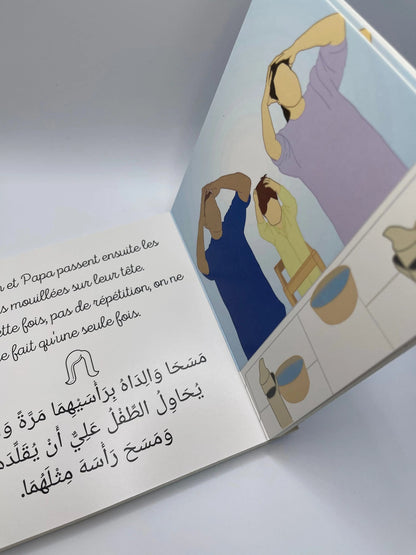 et Papa passent ensuite les
mouillées sur leur tête.
fois, pas de répétition, on ne
fait qu'une seule fois.
مَسَحَا وَالِدَاهُ بِرَأْسَيْهِمَا مَرَّةً
يُحَاوِلُ الطِّفْلُ عَلِيٌّ أَنْ يُقَلِّدَهُ
وَمَسَحَ رَأْسَهُ مِثْلَهُمَا.